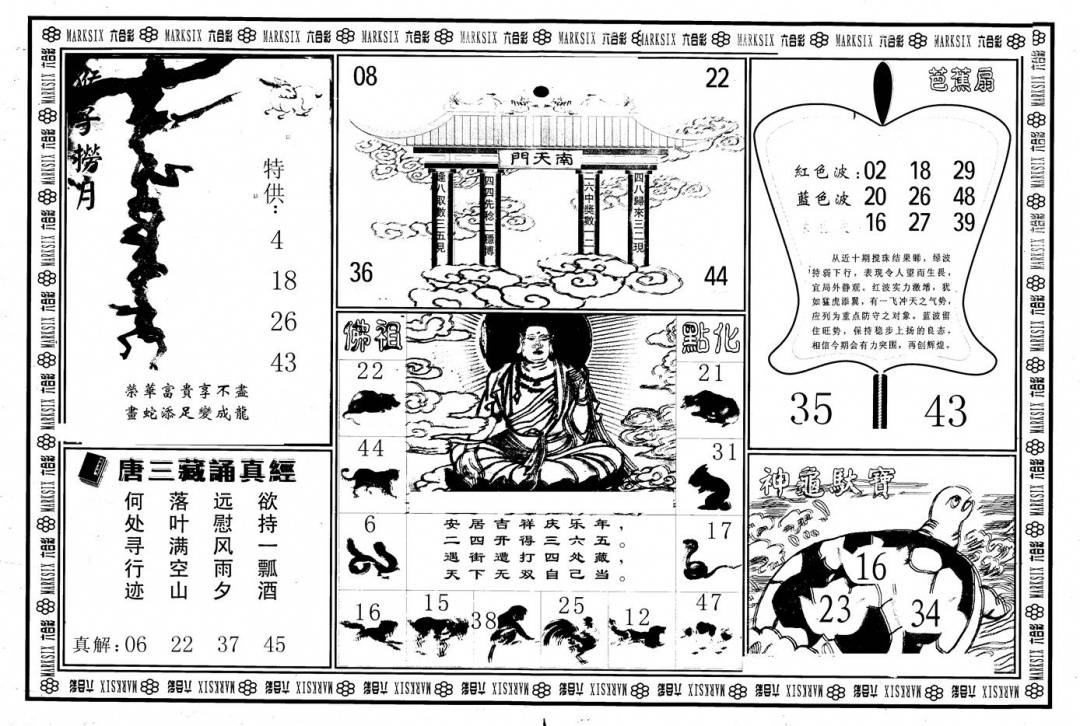 MARKSIX 六合彩 MARKSIX 六合彩 MARKSIX 六合彩 MARKSIX 六合彩 MARKSIX 六合彩 MARKSIX 六合彩 MARKSIX 六合彩 MARKSIX 六合彩 MARKSIX 六合彩 MARKSIX 六合彩
猴子撈月
特供：
4
18
26
43
榮華富貴享不盡
畫蛇添足變成龍
08
22
南天門
逢八取數三五見
四四先稔一穩博
二六中獎數一二
四八歸來三二現
36
44
芭蕉扇
紅色波：02 18 29
蓝色波 20 26 48
16 27 39
从近十期搅珠结果睇，绿波
持弱下行，表现令人望而生畏，
宜局外静观。红波实力激增，犹
如猛虎添翼，有一飞冲天之气势，
应列为重点防守之对象。蓝波留
住旺势，保持稳步上扬的良态，
相信今期会有力突围，再创辉煌。
35
43
佛祖
點化
22
21
44
31
6
17
安居吉祥庆乐年，
二四开得三六五。
遇街遭打四处藏，
天下无双自己当。
16
15
38
25
12
47
唐三藏誦真經
欲持一瓢酒
远慰风雨夕
落叶满空山
何处寻行迹
真解：06 22 37 45
神龜馱寶
16
23
34
MARKSIX 六合彩 MARKSIX 六合彩 MARKSIX 六合彩 MARKSIX 六合彩 MARKSIX 六合彩 MARKSIX 六合彩 MARKSIX 六合彩 MARKSIX 六合彩 MARKSIX 六合彩 MARKSIX 六合彩